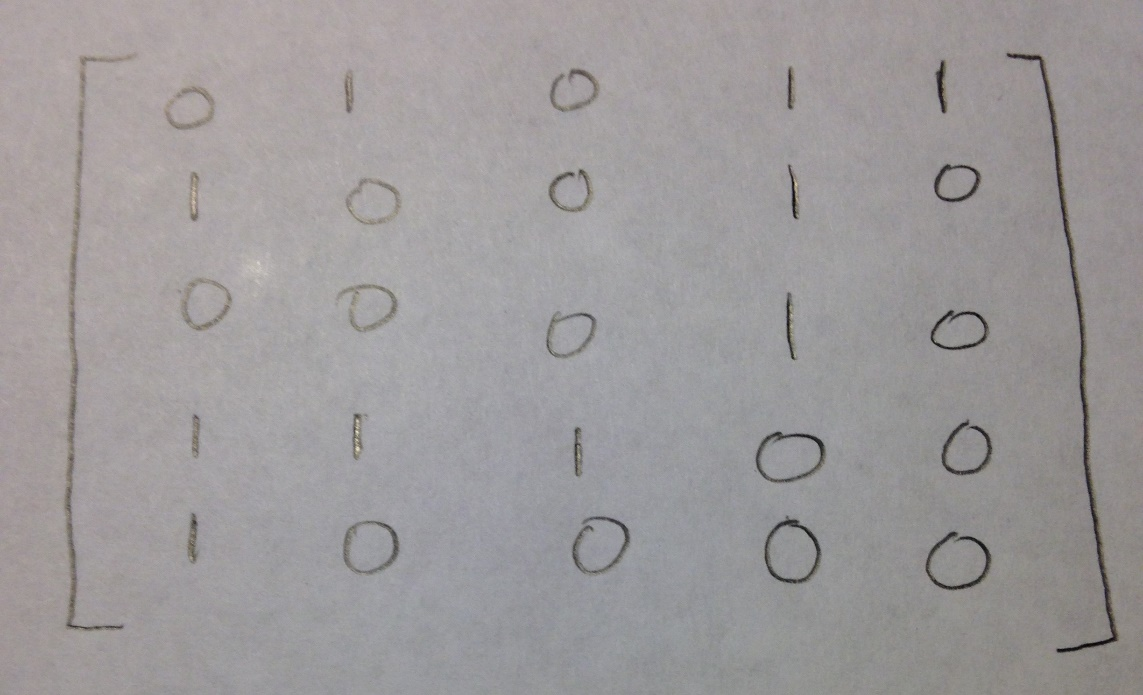 0 1 0 1 1
1 0 0 1 0
0 0 0 1 0
1 1 1 0 0
1 0 0 0 0